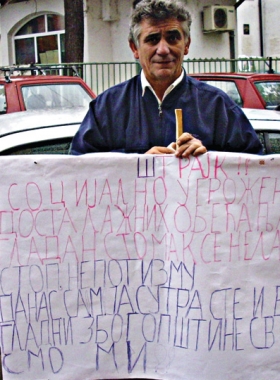 ШТРАЈК!!!
СОЦИЈАЛНО УГРОЖЕ
ДОСТА ЛАЖНИХ ОБЕЋАЊ
ГЛАДА
СТОП НЕПОТИЗМУ
ДАНАС САМ ЈА СУТРА СТЕ И
ГЛАДНИ ЗБОГ ОПШТИНЕ СВ
СМО МИ